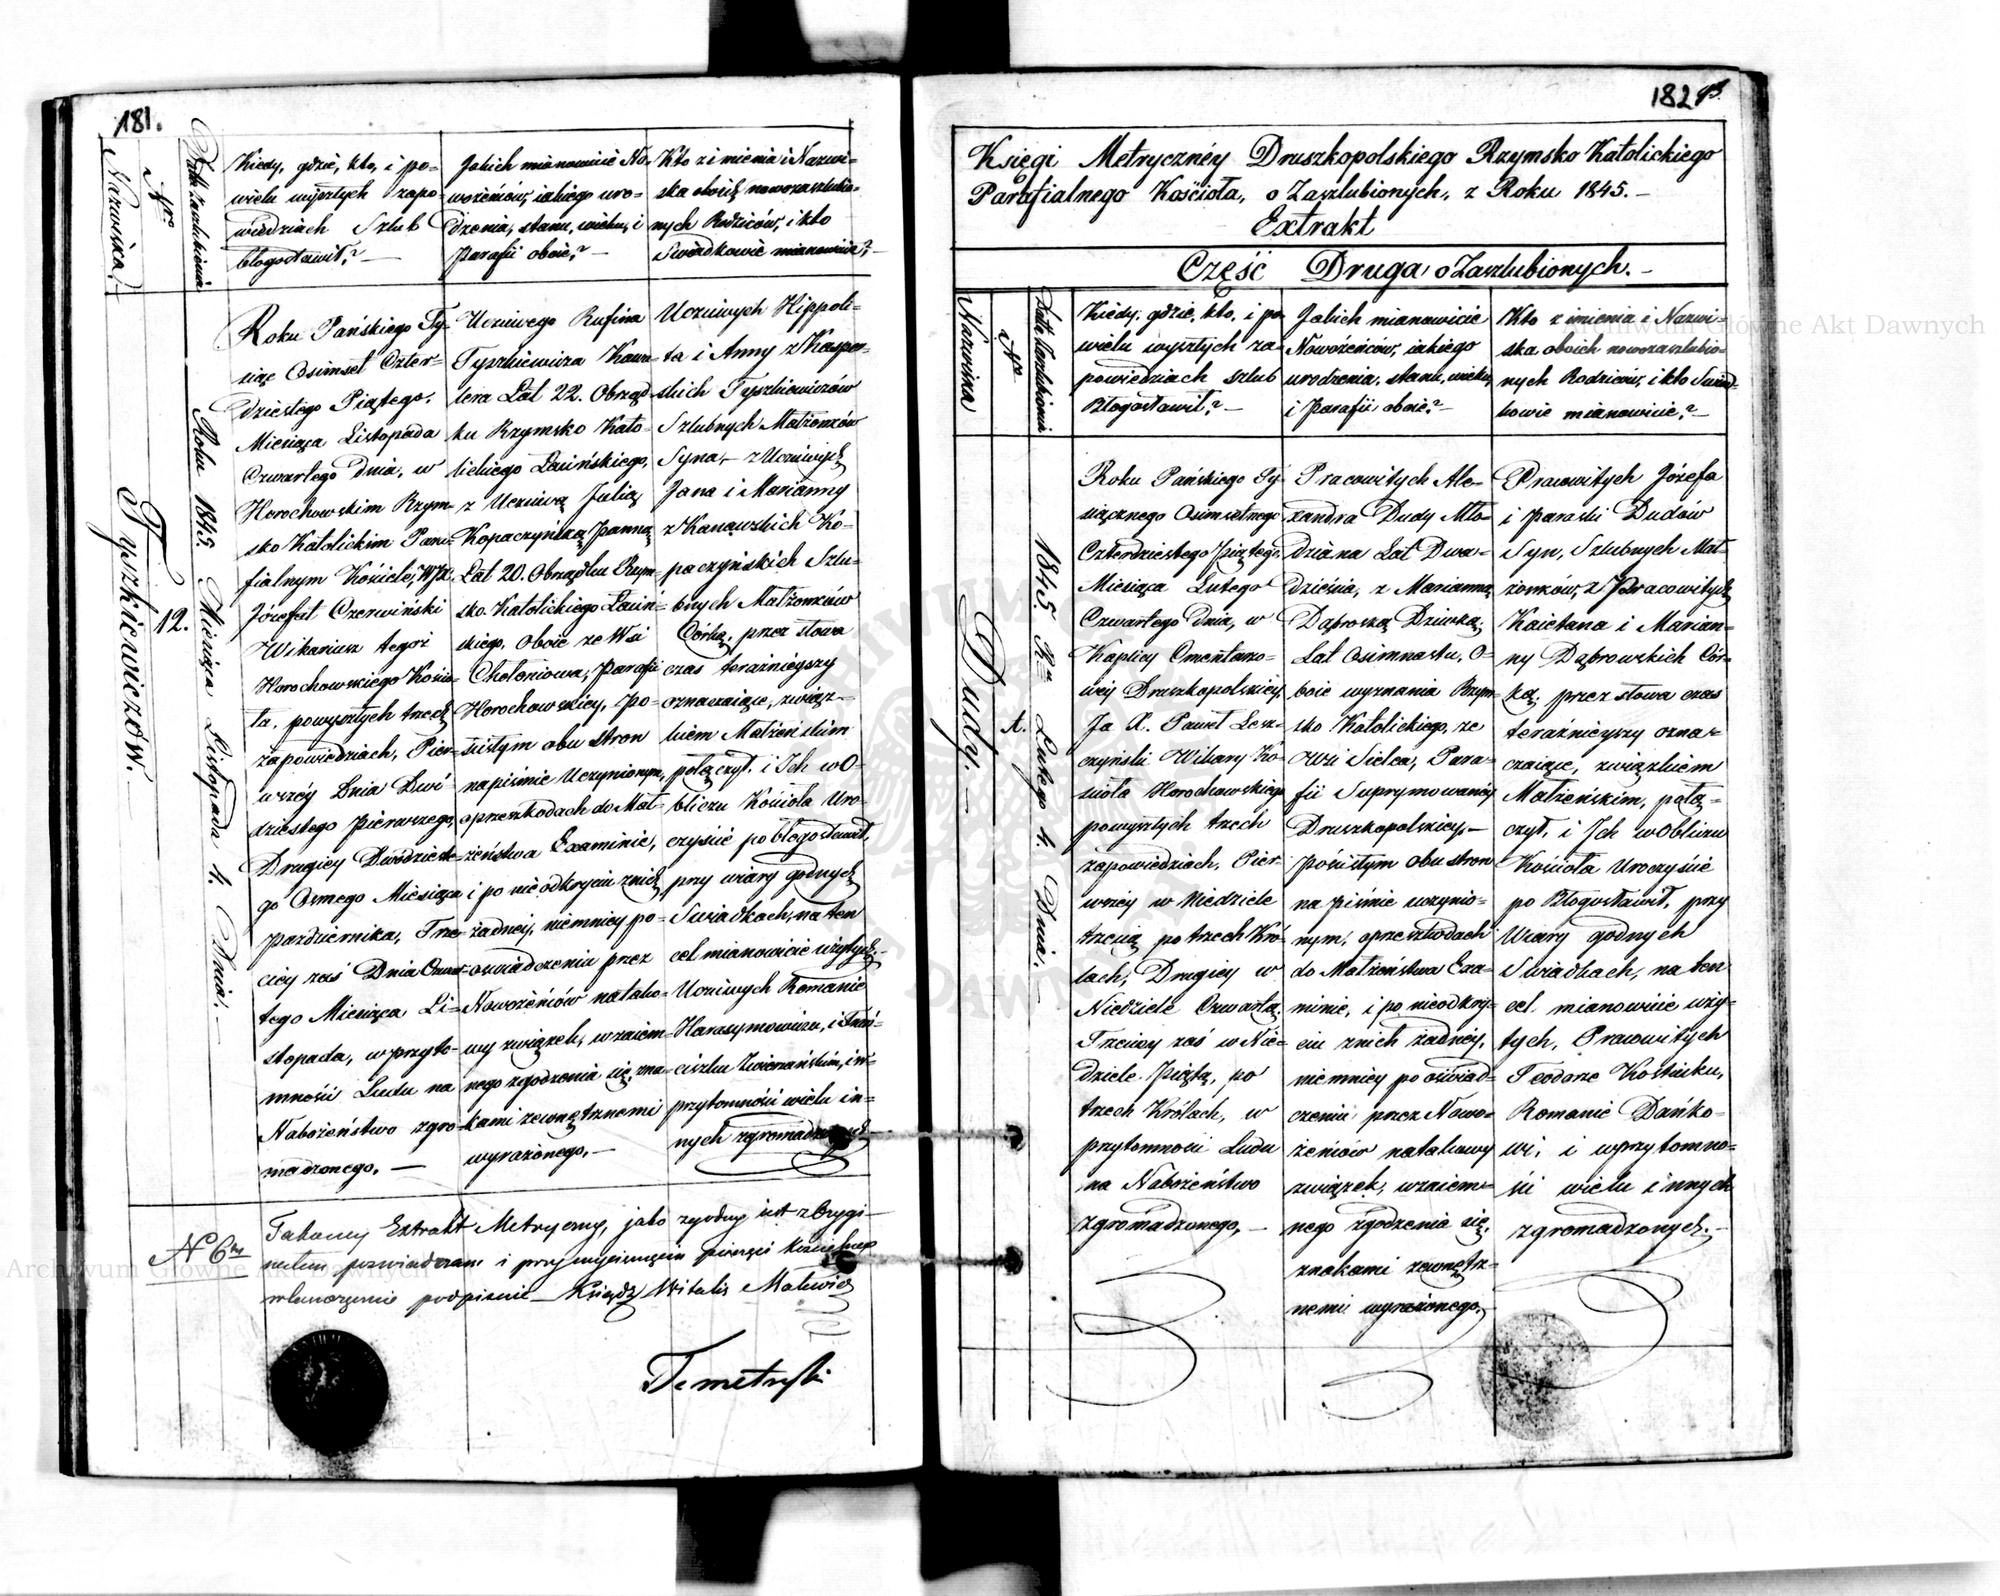 181.
Nazwiska.
Nro
Data Zaszlubienia
Kiedy, gdzie, kto, i po
wielu wyszłych zapo-
wiedziach Szlub
błogosławił?
Jakich mianowicie No-
wożeńców, iakiego uro-
dzenia, stanu, wieku, i
Parafii oboie? -
Kto z imienia i Nazwi-
ska oboich nowozaszlubio-
nych Rodziców, i kto
Swiadkowie mianowicie? -
Tyszkiewiczów.
12.
Roku 1845 Miesiąca Listopada 4. Dnia. -
Roku Pańskiego Ty-
siąc Osimset Czter-
dziestego Piątego.
Miesiąca Listopada
Czwartego Dnia, w
Horochowskim Rzym-
sko Katolickim Para-
fialnym Kościele, WJX
Józefat Czerwiński
Wikariusz tegoż
Horochowskiego Kościo-
ła, powyszłych trzech
zapowiedziach, Pier-
wszéy Dnia Dwó-
dziestego pierwszego,
Drugiey Dwódzieste-
go Osmego Miesiąca
Października, Trze-
ciey zaś Dnia Czwar-
tego Miesiąca Li-
stopada, w przyto-
mności Ludu na
Nabożeństwo zgro-
madzonego. -
Uczciwego Rufina
Tyszkiewicza Kawa-
lera Lat 22. Obrząd-
ku Rzymsko Kato-
lickiego Łacińskiego,
z Uczciwą Julią
Kopaczyńską Panną
Lat 20. Obrządku Rzym-
sko. Katolickiego Łaciń-
skiego, oboie ze Wsi
Chołoniowa, Parafii
Horochowskiey, Po-
ścisłym obu stron
napiśmie Uczynionym,
oprzeszkodach do Mał-
żeństwa Examinie,
i po nie odkryciu znich
żadney, niemniey po-
oswiadczeniu przez
Nowożeńców natako-
wy związek, wzaiem-
nego zgodzenia się, zna-
kami zewnętrznemi
wyrażonego. -
Uczciwych Hippoli-
ta i Anny z Kasper-
skich Tyszkiewiczów
Szlubnych Małżonków
Syna, - z Uczciwych
Jana i Marianny
z Kanewskich Ko-
paczyńskich Szlu-
bnych Małżonków
Córką, przez słowa
czas teraźnieyszy
oznaczaiące, związ-
kiem Małżeńskim
połączył, i Ich w O-
bliczu Kościoła Uro-
czyście pobłogosławił,
przy wiary godnych
Swiadkach, na ten
cel mianowicie użytych.
Uczciwych Romanie
Harasymowiczu, i Fran-
ciszku , i w
przytomności wielu in-
nych zgromadzonych
N 6ty
Takowy Extrakt Metryczny, jako zgodny iest z Orygi-
nałem poswiadczam i przy wyciśnięciu pieczęci Kościelney
własnoręcznie podpisuię - Xsiądz Witalis Malewicz
182
Księgi Metrycznéy Druszkopolskiego Rzymsko Katolickiego
Parafialnego Kościoła, o Zaszlubionych, z Roku 1845. -
Extrakt
Część Druga o Zaszlubionych. -
Nazwiska
Nro
Data Zaszlubienia
Kiedy, gdzie, kto, i po
wielu wyszłych za-
powiedziach szlub
Błogosławił? -
Jakich mianowicie
Nowożeńców, iakiego
urodzenia, stanu, wieku,
i Parafii oboie? -
Kto z imienia i Nazwi-
ska oboich nowozaszlubio-
nych Rodziców, i kto Swiad-
kowie mianowicie? -
Dudy. -
1.
1845. Ru Lutego 4. Dnia. -
Roku Pańskiego Ty-
siącznego Osimsetnego
Czterdziestego piątego,
Miesiąca Lutego
Czwartego Dnia, w
Kaplicy Cmentarzo-
wéy Druszkopolskiey,
Ja X. Paweł Lesz-
czyński Wikary Ko-
ścioła Horochowskiego
powyszłych trzech
zapowiedziach, Pier-
wszéy w Niedziele
trzecią po trzech Kró-
lach, Drugiey w
Niedziele Czwartą.
Trzeciey zaś w Nie-
dziele Piątą, po
trzech Królach, w
przytomności Ludu
na Nabożeństwo
zgromadzonego, -
Pracowitych Ale-
xandra Dudy Mło-
dziana Lat Dwa-
dzieścia, z Marianną
Dąbroską Dziewką,
Lat Osimnastu, O-
boie wyznania Rzym-
sko Katolickiego, ze
Wsi Sielca, Para-
fii Suprymowaney
Druszkopolskiey, -
Pościsłym obu stron
na piśmie uczynio-
nym, oprzeszkodach
do Małżeństwa Exa-
minie, i po nieodkry-
ciu znich żadney,
niemniey po oświad-
czeniu przez Nowo-
żeńców natakowy
związek, wzaiem-
nego zgodzenia się,
znakami zewnętrz-
nemi wyrażonego.
Pracowitych Józefa
i Paraski Dudów
Syn, Szlubnych Mał-
żonków, z Pracowitych
Kaietana i Marian-
ny Dąbrowskich Cór-
ką, przez słowa czas
teraźnieyszy ozna-
czaiące, związkiem
Małżeńskim, połą-
czył, i Ich w Obliczu
Kościoła Uroczyście
po Błogosławił, przy
Wiary godnych
Swiadkach, na ten
cel mianowicie uży-
tych, Pracowitych
Teodorze Kostiuku,
Romanie Dańko-
wi, i w przytomno-
ści wielu innych
zgromadzonych. -
Archiwum Główne Akt Dawnych
Archiwum Główne Akt Dawnych